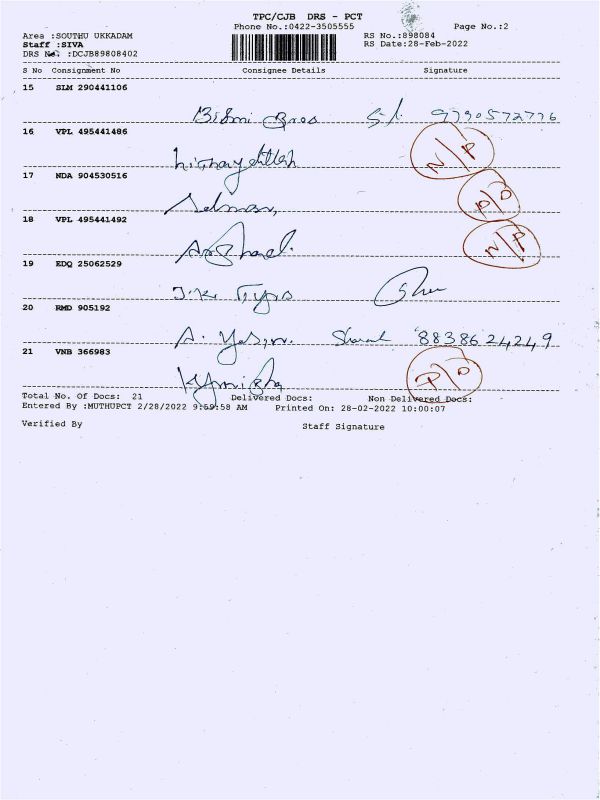 TPC/CJB DRS - PCT
Phone No.:0422-3505555 Page No.:2
Area :SOUTHU UKKADAM RS No.:898084
Staff :SIVA RS Date:28-Feb-2022
DRS No. :DCJB89808402
S No Consignment No Consignee Details Signature
15 SLM 290441106
Bismi Bros 9790572776
16 VPL 495441486
N/P
17 NDA 904530516
Selman, P/O
18 VPL 495441492
N/P
19 EDQ 25062529
J.K. Tyres
20 RMD 905192
A. Yasin. 8838624249
21 VNB 366983
P/O
Total No. Of Docs: 21 Delivered Docs: Non Delivered Docs:
Entered By :MUTHUPCT 2/28/2022 9:59:58 AM Printed On: 28-02-2022 10:00:07
Verified By Staff Signature